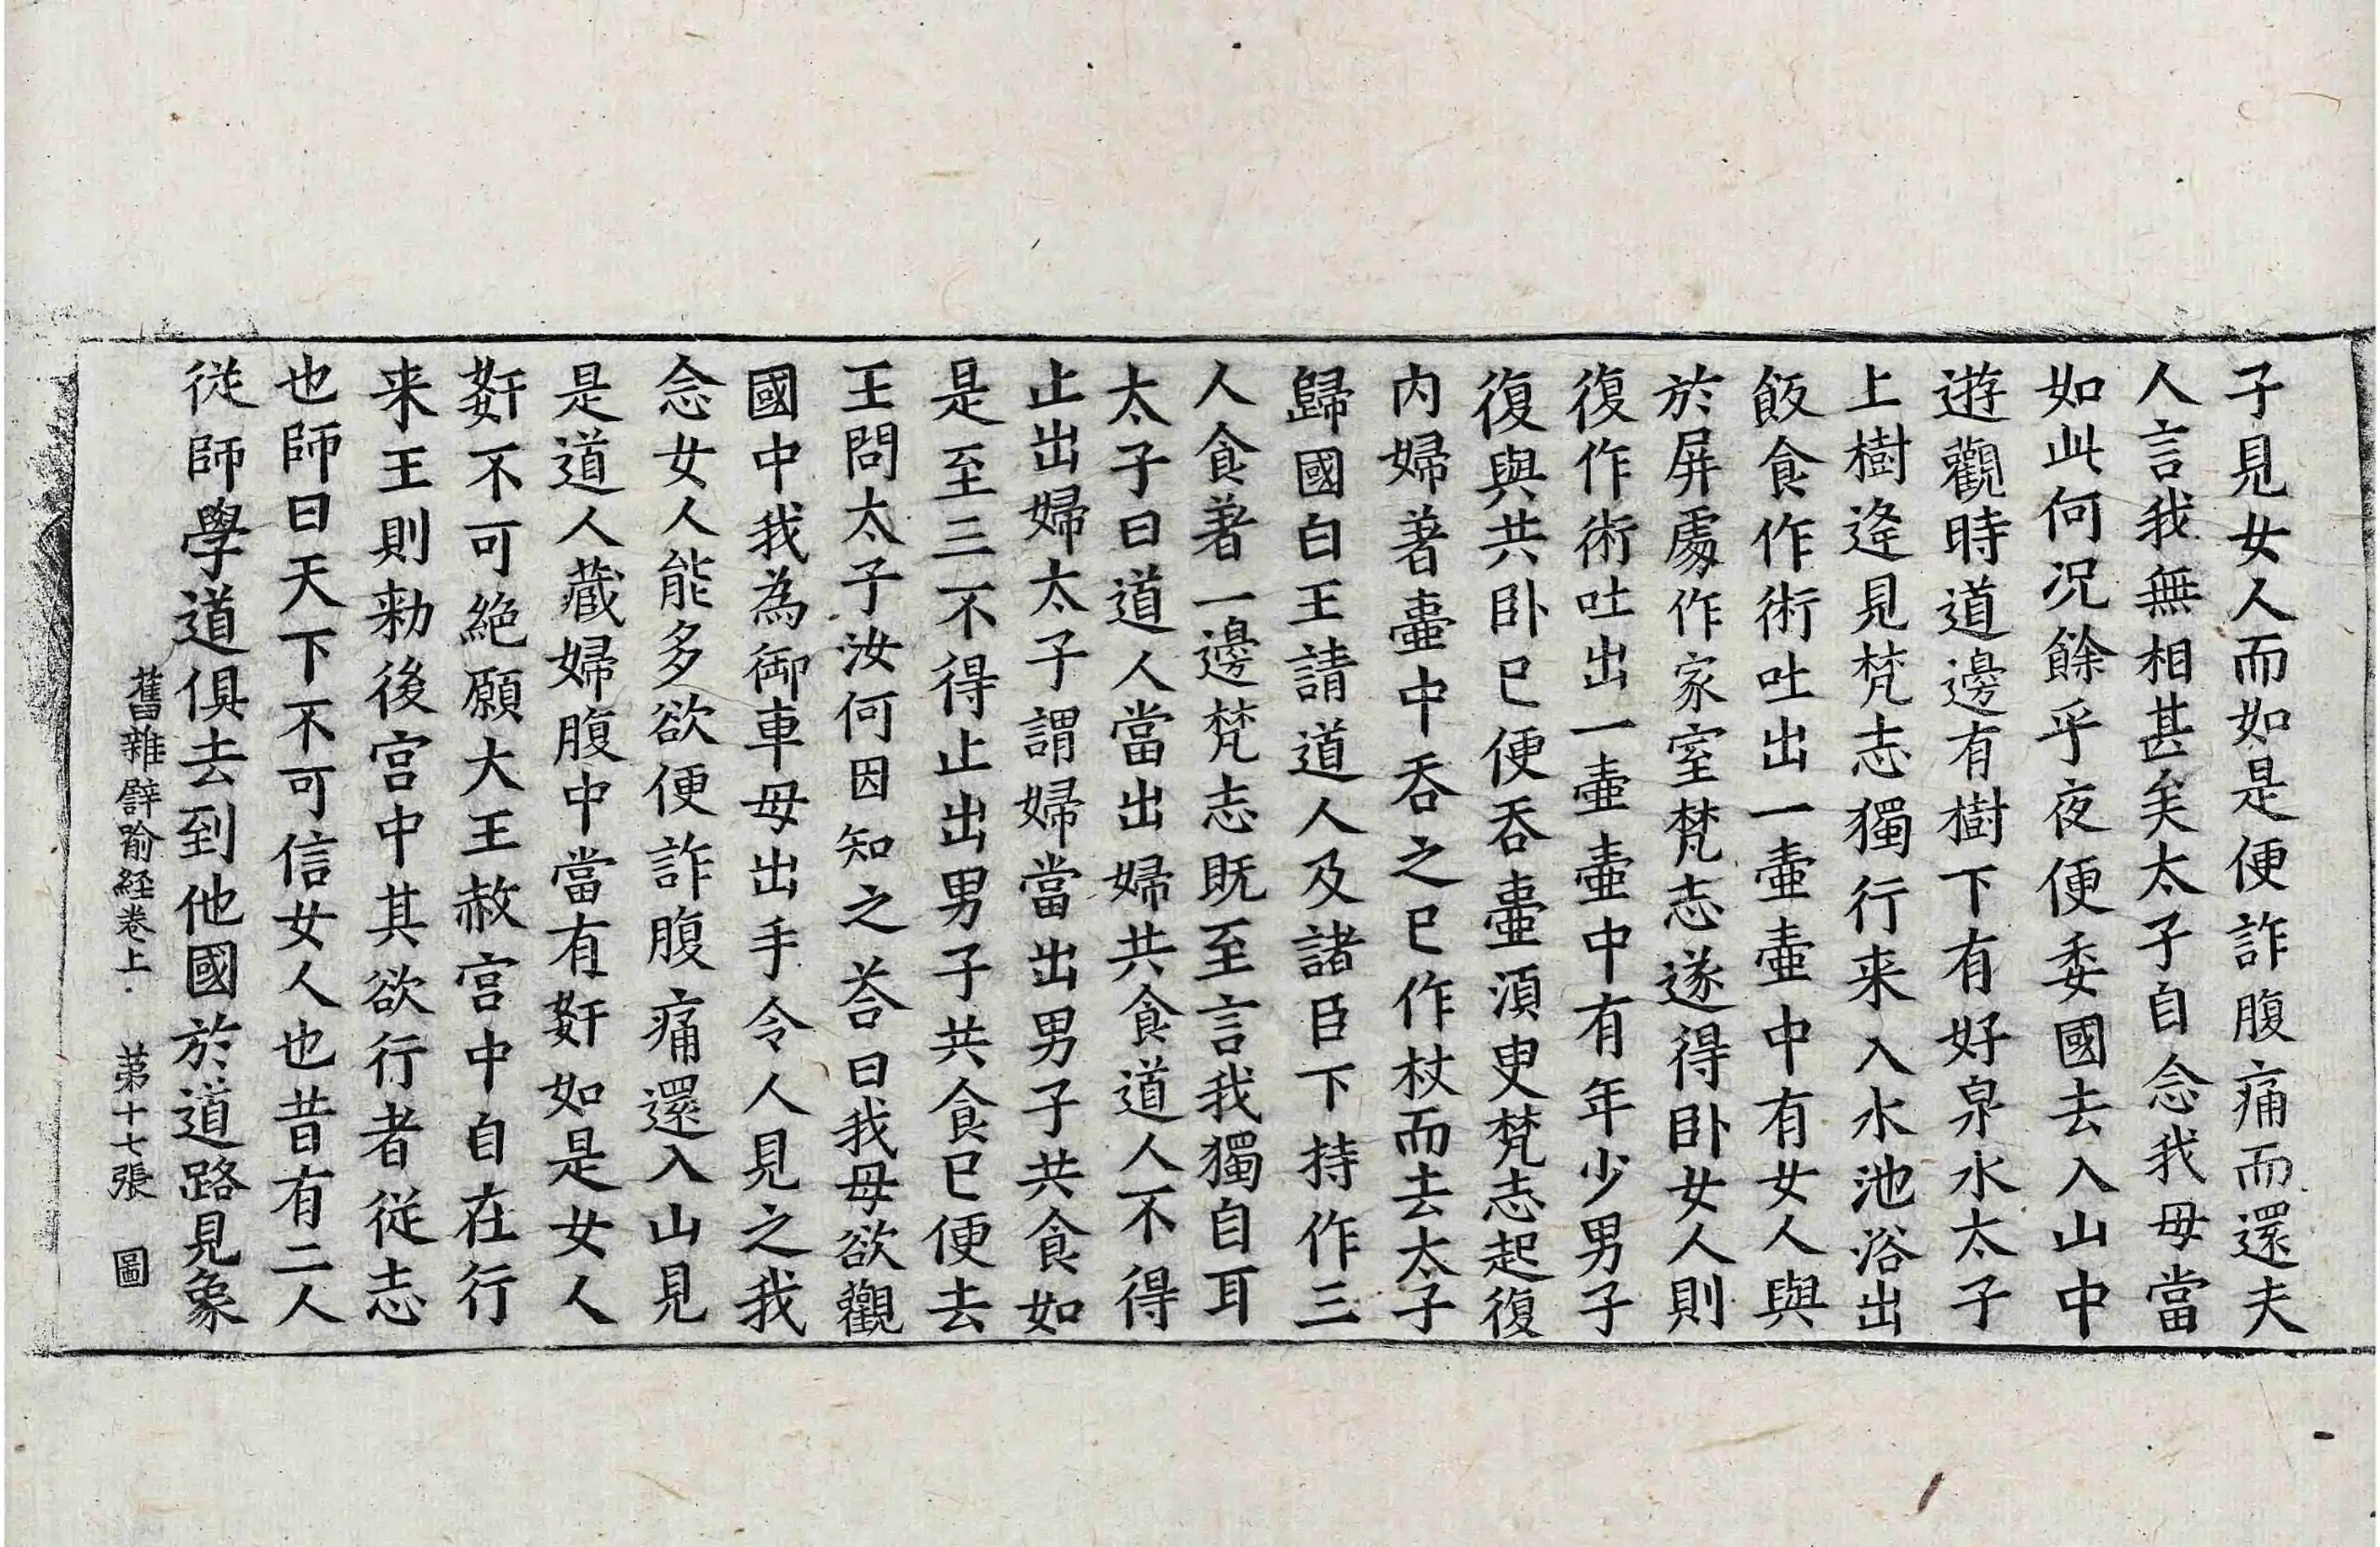 子見女人而如是便詐腹痛而還夫
人言我無相甚矣太子自念我母當
如此何况餘乎夜便委國去入山中
遊觀時道邊有樹下有好泉水太子
上樹逢見梵志獨行来入水池浴出
飯食作術吐出一壷壷中有女人與
於屏䖏作家室梵志遂得卧女人則
復作術吐出一壷壷中有年少男子
復與共卧已便吞壷湏臾梵志起復
内婦著壷中吞之已作杖而去太子
歸國白王請道人及諸臣下持作三
人食著一邊梵志既至言我獨自耳
太子曰道人當出婦共食道人不得
止出婦太子謂婦當出男子共食如
是至三不得止出男子共食已便去
王問太子汝何因知之荅曰我母欲觀
國中我為御車母出手令人見之我
念女人能多欲便詐腹痛還入山見
是道人藏婦腹中當有姧如是女人
姧不可絶願大王赦宫中自在行
来王則勑後宫中其欲行者從志
也師曰天下不可信女人也昔有二人
從師學道俱去到他國於道路見象
舊雜譬喻経卷上 苐十七張 圖